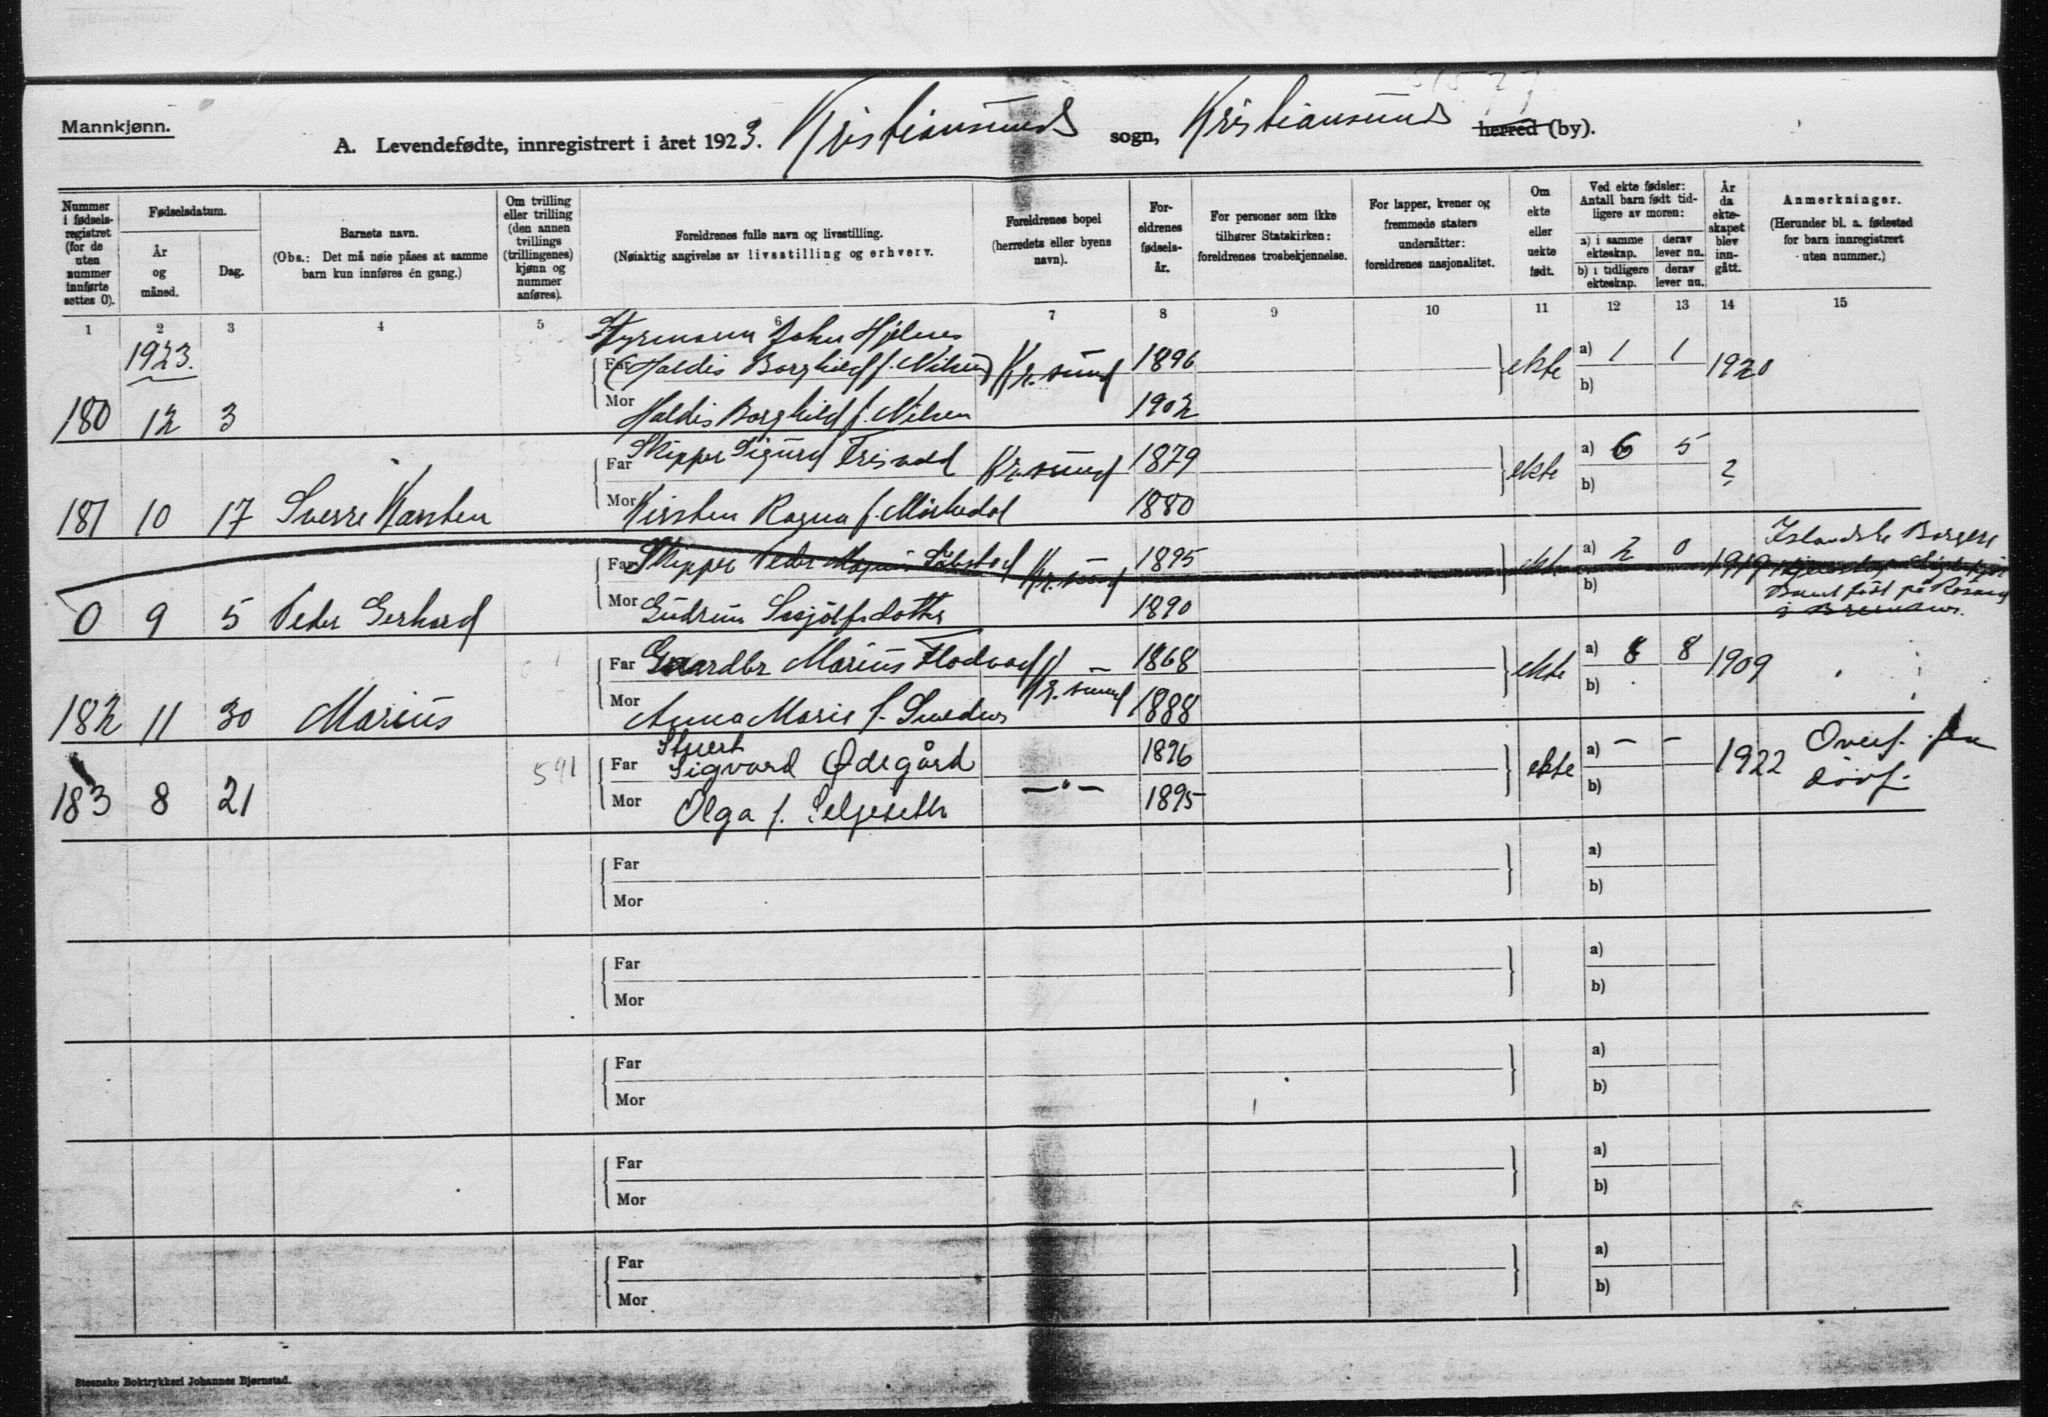 Mannkjønn.
A. Levendefødte, innregistrert i året 1923. Kristiansund sogn, Kristiansund herred (by).
Nummer i fødsels-registret (for de uten nummer innførte settes 0).
Fødselsdatum.
År og måned.
Dag.
Barnets navn.
(Obs.: Det må nøie påses at samme barn kun innføres én gang.)
Om tvilling eller trilling (den annen tvillings (trillingenes) kjønn og nummer anføres).
Foreldrenes fulle navn og livsstilling.
(Nøiaktig angivelse av livsstilling og erhverv.
Foreldrenes bopel (herredets eller byens navn).
For-eldrenes fødsels-år.
For personer som ikke tilhører Statskirken: foreldrenes trosbekjennelse.
For lapper, kvener og fremmede staters undersåtter: foreldrenes nasjonalitet.
Om ekte eller uekte født.
Ved ekte fødsler: Antall barn født tid-ligere av moren:
a) i samme ekteskap. derav lever nu.
b) i tidligere ekteskap. derav lever nu.
År da ekte-skapet blev inn-gått.
Anmerkninger.
(Herunder bl. a. fødested for barn innregistrert uten nummer.)
1 2 3 4 5 6 7 8 9 10 11 12 13 14 15
1923.
Styrmann John Hjelnes
Far (Haldis Borghild f. Nilsen) Kr.sund 1896 ekte a) 1 1 1920
b)
180 12 3 Mor Haldis Borghild f. Nilsen 1902
Far Skipper Sigurd Kr.sund 1879 ekte a) 6 5 ?
b)
181 10 17 Sverre Karsten Mor Kirsten Ragna f. 1880
Far Skipper Peder Kr.sund 1895 ekte a) 2 0 1919 Islandske Borgere
b)
0 9 5 Peder Gerhard Mor Gudrun 1890 Barnet født på
Far Gaardbr Marius Flodvad Kr.sund 1868 ekte a) 8 8 1909
b)
182 11 30 Marius Mor Anna Marie f. 1888
591 Far Stuert Sigvard Ødegård —"— 1896 ekte a) — — 1922 Overf. fra
b) dövf.
183 8 21 Mor Olga f. Selgeseth 1895
Far a)
Mor b)
Far a)
Mor b)
Far a)
Mor b)
Far a)
Mor b)
Far a)
Mor b)
Steenske Boktrykkeri Johannes Bjørnstad.